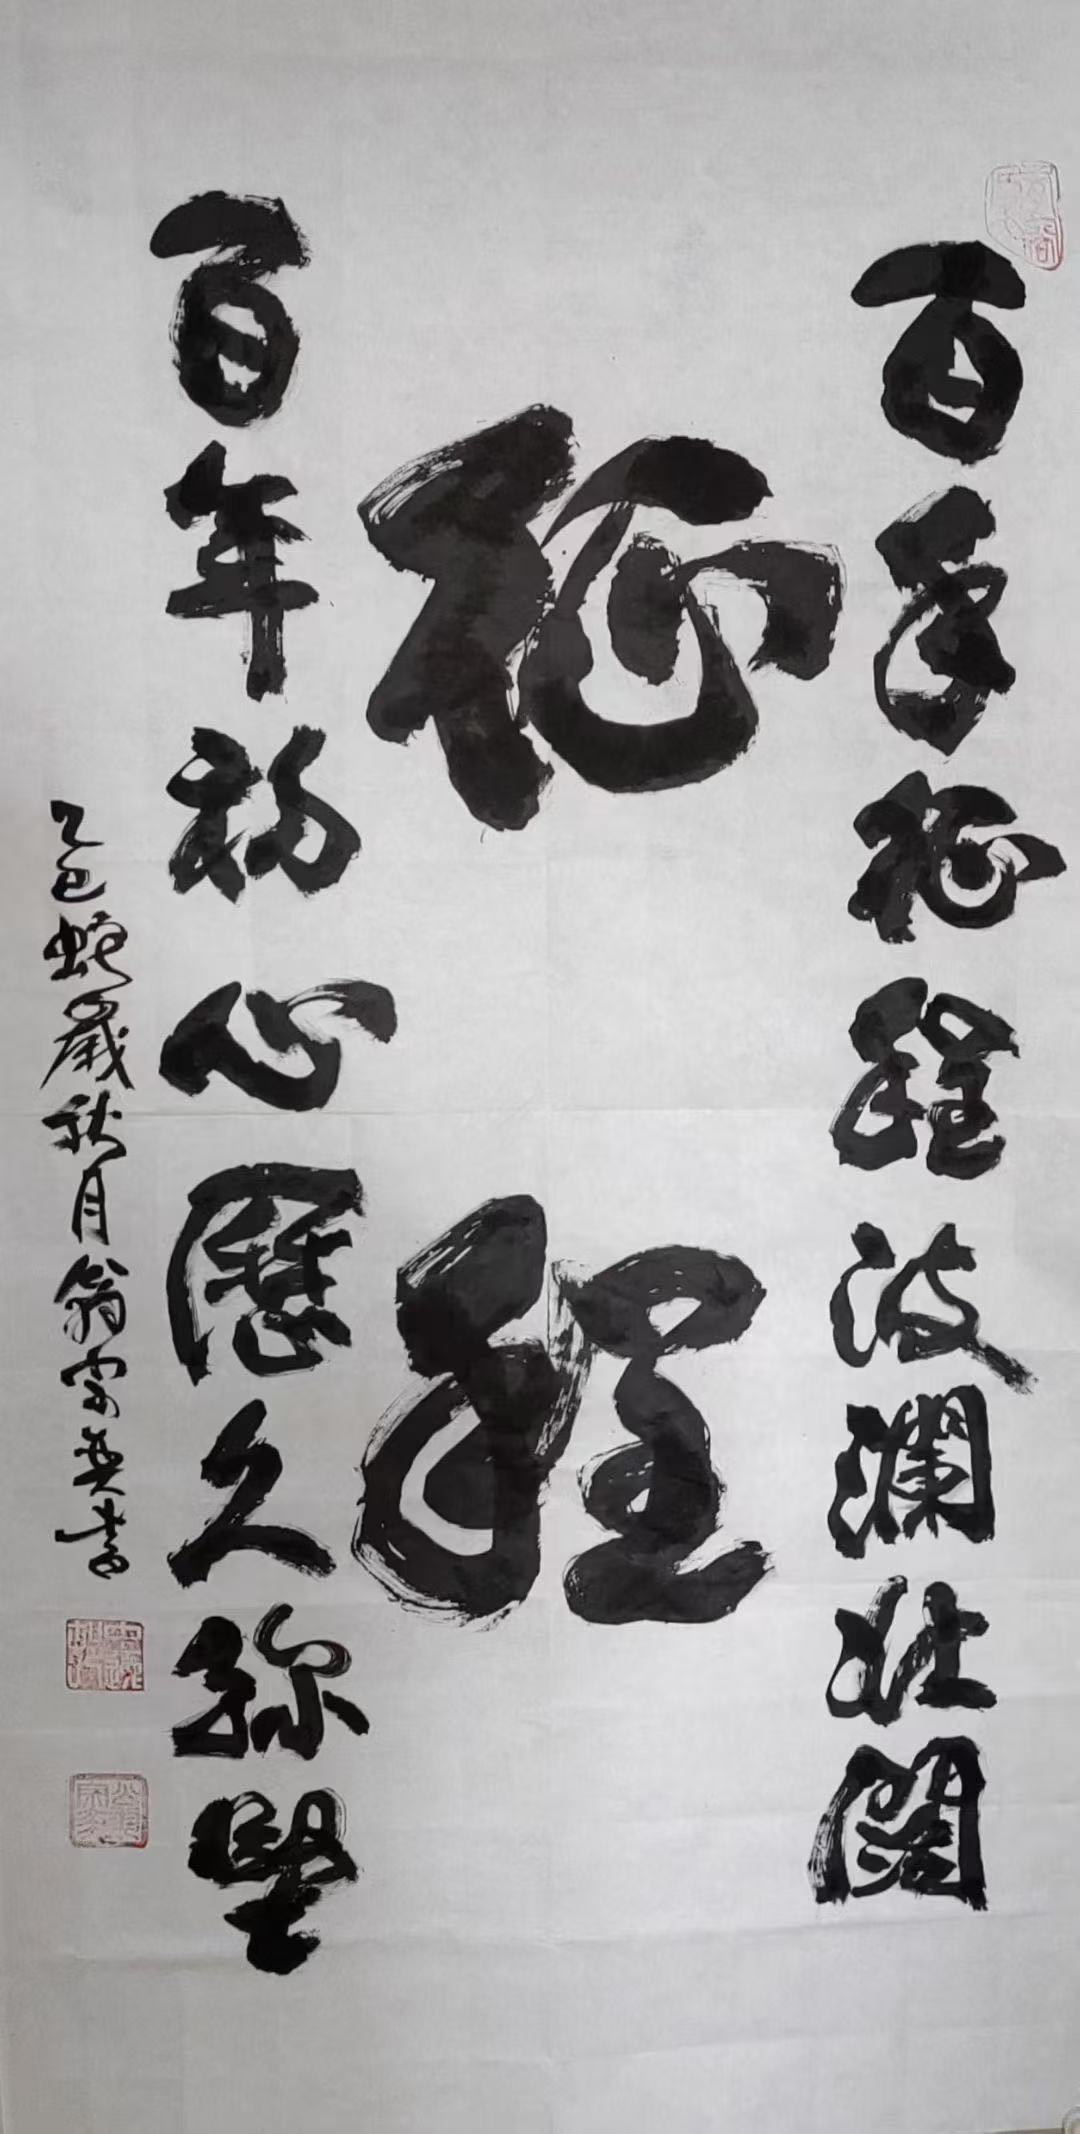 百年征程波瀾壯闊
征程
百年初心歷久彌堅
乙巳蛇歲秋月翁宗奕書